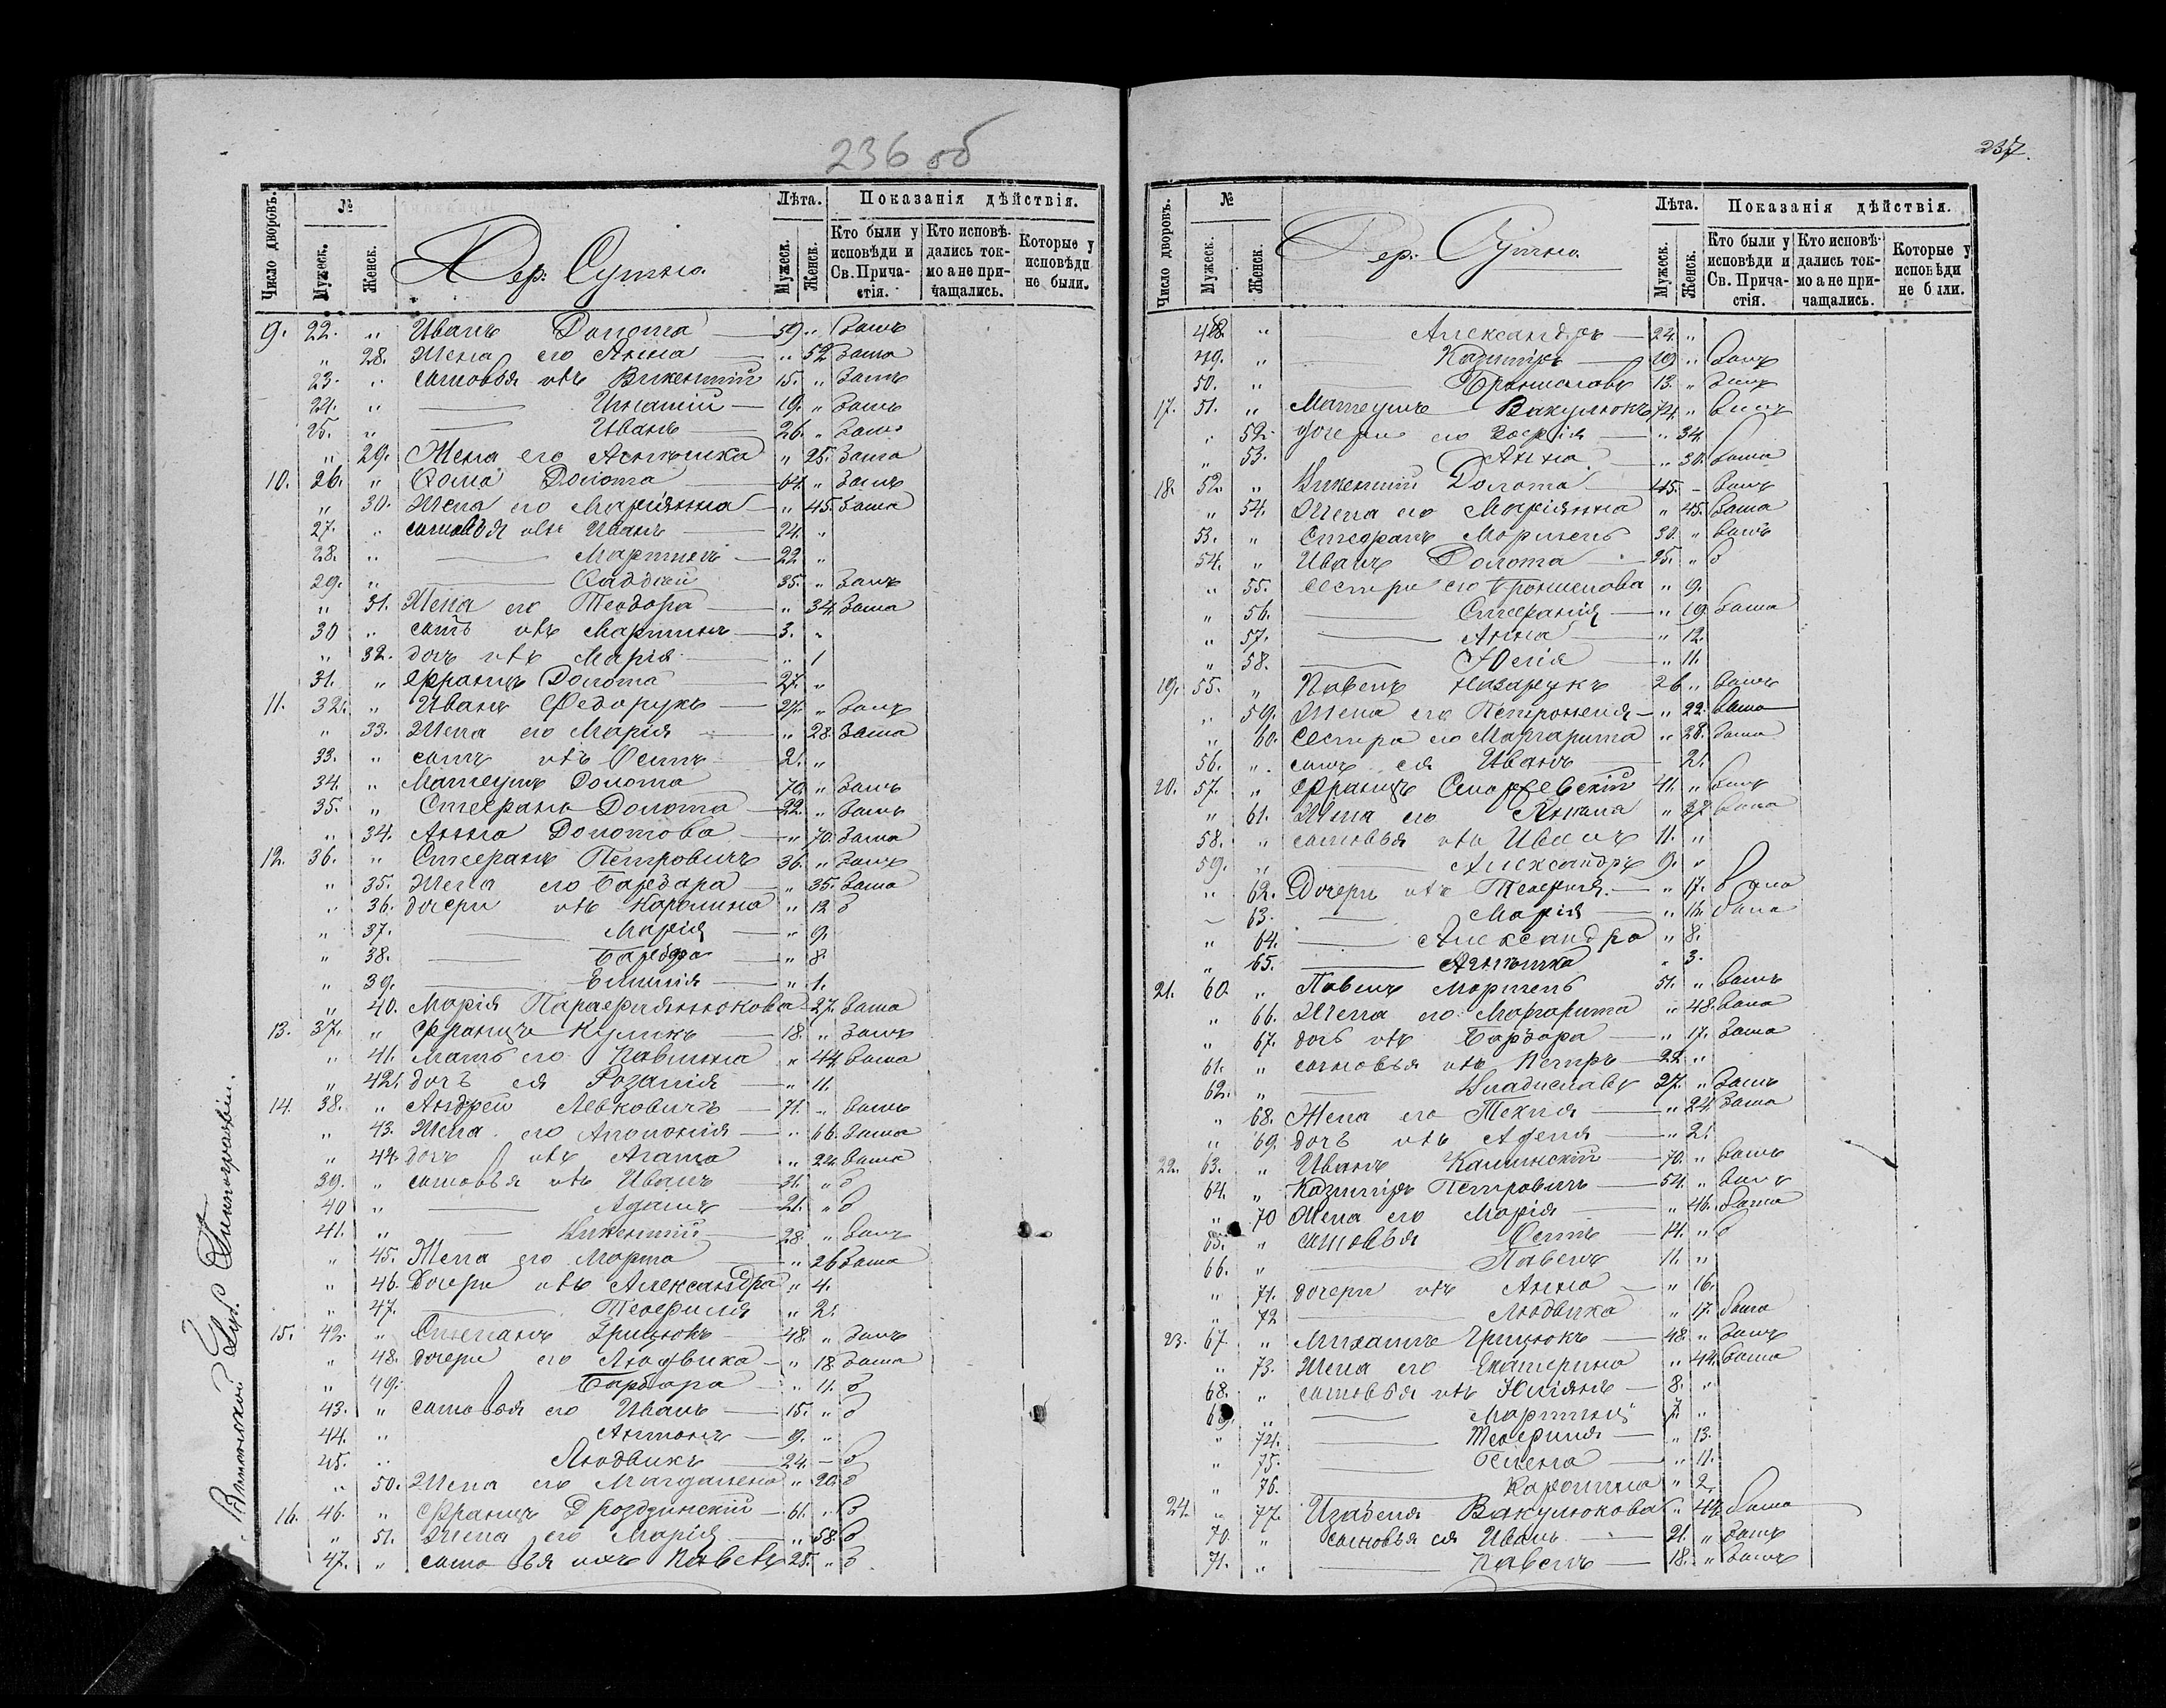 236 об
Число дворовъ. № Мужеск. Женск. Дер. Сутно. Лѣта. Мужеск. Женск. Показанія дѣйствія.
Кто были у исповѣди и Св. Прича-стія. Кто исповѣ-дались ток-мо а не при-чащались. Которые у исповѣди не были.
9. 22. " Иванъ Долота 59. " былъ
" 28. Жена его Анна " 52 была
23. " сыновья ихъ Викентій 15. " былъ
24. " Игнатій 19. " былъ
25. " Иванъ 26. " былъ
" 29. Жена его Антонина " 25. была
10. 26. " Ѳома Долота 64. " былъ
" 30. Жена его Маріянна " 45. была
27. " сыновья ихъ Иванъ 24. "
28. " Мартинъ 22 "
29. " Ѳаддей 35. " былъ
" 31. Жена его Теодора " 34. была
30 " сынъ ихъ Мартинъ 3. "
" 32. дочь ихъ Марія " 1
31. " Францъ Долота 27. "
11. 32. " Иванъ Федорукъ 27. " былъ
" 33. Жена его Марія " 28. была
33. " сынъ ихъ Осипъ 2. "
34. " Матеушъ Долота 70. " былъ
35. " Стефанъ Долота 22. " былъ
" 34. Анна Долотова " 70. была
12. 36. " Стефанъ Петровичъ 36. " былъ
" 35. Жена его Барбара " 35. была
" 36. дочери ихъ Каролина " 12 б
" 37. Марія " 9.
" 38. Барбара " 8.
" 39. Емилія " 1.
" 40. Марія Парафіянюкова 27. была
13. 37. " Францъ Куликъ 18. " былъ
" 41. мать его Павлина " 44. была
" 42. дочь ея Розалія " 11.
14. 38. " Андрей Левковичъ 71. " былъ
" 43. Жена его Аполонія " 66. была
" 44. дочь ихъ Агата " 24. была
39. " сыновья ихъ Иванъ 31. " б
40 " Адамъ 21. " б
41. " Викентій 28. " былъ
" 45. Жена его Марта " 26 была
" 46. Дочери ихъ Александра " 4.
" 47. Теофилія " 2.
15. 42. " Степанъ Грицюкъ 48. " былъ
" 48. дочери его Людвика " 18. была
" 49. Барбара " 11. б
43. " сыновья его Иванъ 15. " б
44. " Антонъ 9. "
45. " Людвикъ 24. – б
" 50. Жена его Магдалена " 20. б
16. 46. " Францъ Дроздзинскій 61. " б
" 51. Жена его Марія " 58. б
47. " сыновья ихъ Павелъ 28. " б
237.
Число дворовъ. № Мужеск. Женск. Дер. Сутно. Лѣта. Мужеск. Женск. Показанія дѣйствія.
Кто были у исповѣди и Св. Прича-стія. Кто исповѣ-дались ток-мо а не при-чащались. Которые у исповѣди не были.
48. " Александръ 24. "
49. " Казиміръ 19. " былъ
50. " Брониславъ 13. " былъ
17. 51. " Матеушъ Вакулюкъ 74. " былъ
" 52. дочери его Софія " 34.
" 53. Анна " 30. была
18. 52. " Викентій Долота 45. – былъ
" 54. Жена его Маріянна " 45. была
53. " Стефанъ 30. " былъ
54. " Иванъ Долота 25. " б
" 55. сестры его Бронислова " 9.
" 56. Стефанія " 19 была
" 57. Анна " 12.
" 58. Юлія " 11.
19. 55. " Павелъ Назарукъ 26 " былъ
" 59. Жена его Петронеля " 22. была
" 60. Сестра его Маргарита " 28. была
56. " сынъ ея Иванъ 2.
20. 57. " Францъ 41. " былъ
" 61. Жена его " 37. была
58. " сыновья ихъ Иванъ 11. "
59. " Александръ 9. "
" 62. Дочери ихъ Теофиля " 17. была
" 63. Марія " 16. была
" 64. Александра " 8.
" 65. Антонина " 3.
21. 60. " Павелъ 51. " былъ
" 66. Жена его Маргарита " 48. была
" 67. дочь ихъ Барбара " 17. была
61. " сыновья ихъ Петръ 22 "
62. " Владиславъ 27. " былъ
" 68. Жена его Текля " 24. была
" 69. дочь ихъ " 2.
22. 63. " Иванъ Калинскій 70. " былъ
64. " Казиміръ Петровичъ 54. " былъ
" 70 Жена его Марія " 46. была
65. " сыновья Осипъ 14. " б
66. " Павелъ 11. "
" 71. дочери ихъ Анна " 16.
" 72 Людвика " 17. была
23. 67 " Михаилъ Грицюкъ 48. " былъ
" 73. Жена его Екатерина " 44. была
68. " сыновья ихъ Юліянъ 8. "
69. " Мартинъ 7. "
" 74. Теофилія " 13.
" 75. " 11.
" 76. Каролина " 2.
24. " 77. Изабеля Вакулюкова " 44. была
70. " сыновья ея Иванъ 21. " былъ
71. " Павелъ 18. " былъ